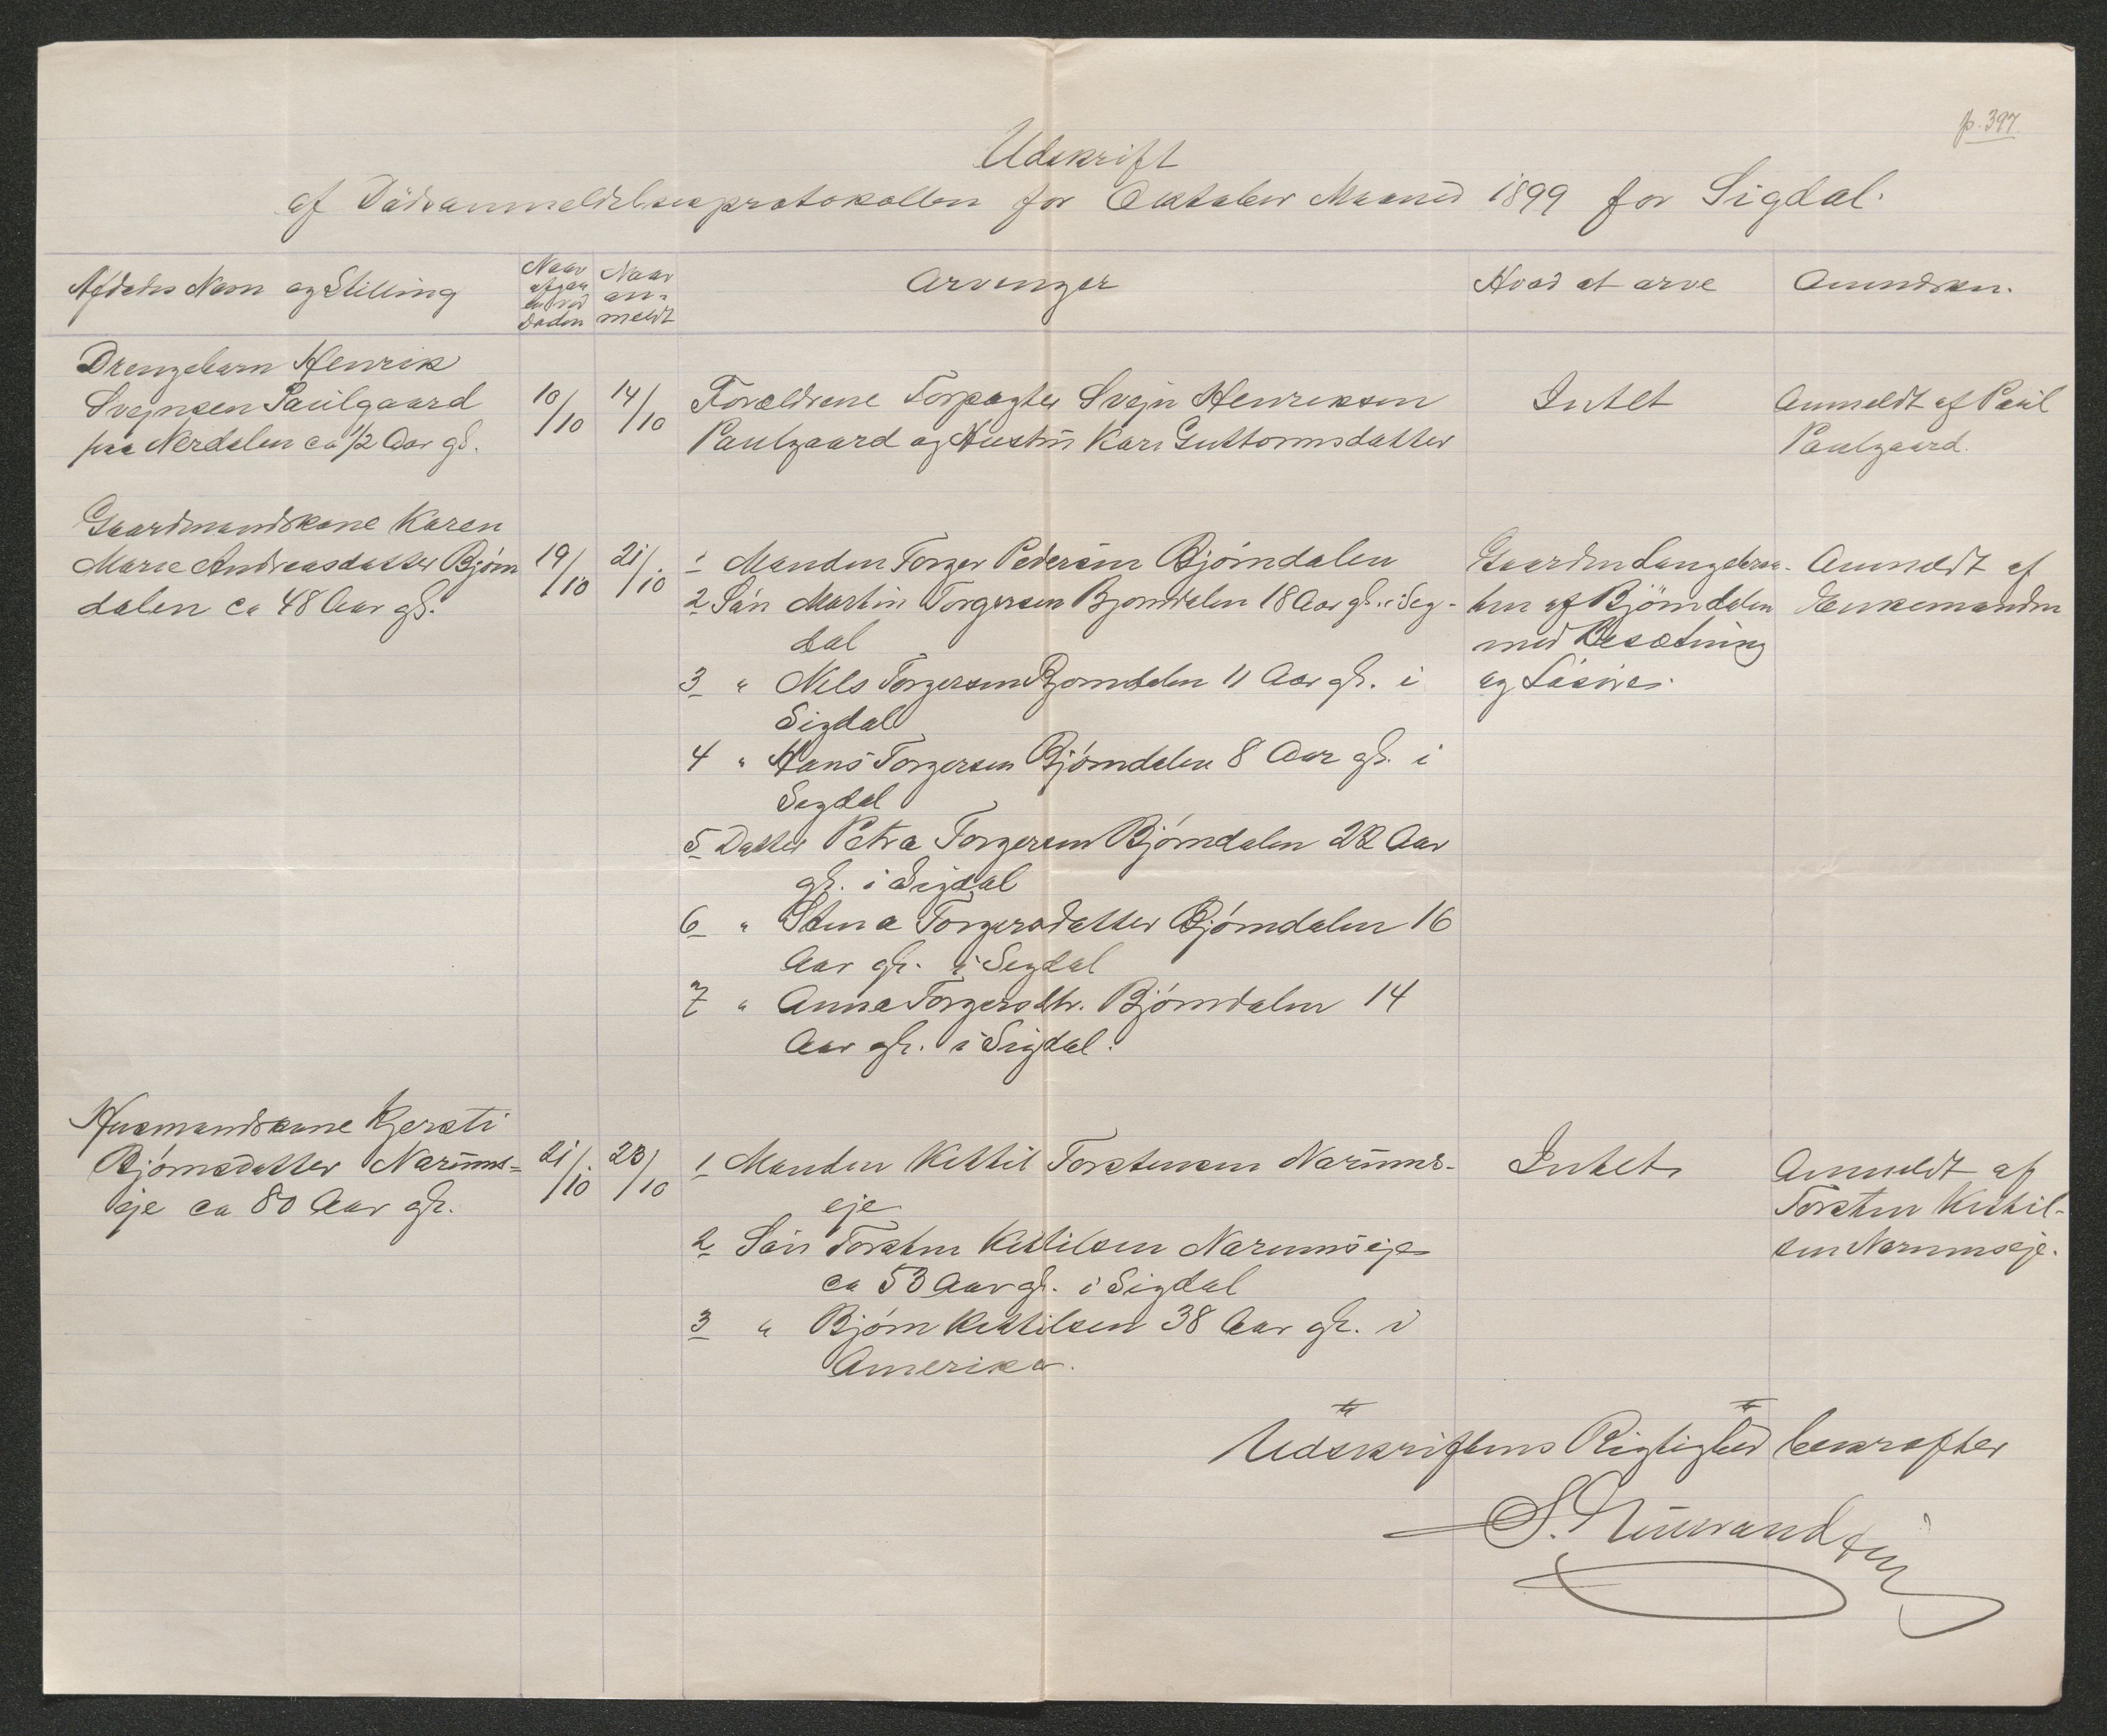 p. 397.
Udskrift
af Dødsanmeldelsesprotokollen for Oktober Maaned 1899 for Sigdal.
Afdødes Navn og Stilling
Naar
afgaa
en ved
Døden
Naar
an-
meldt
Arvinger
Hvad at arve
Anmdrkn.
Drengebarn Henrik
Svejnsen Paulgaard
paa Nerdalen ca 1/2 Aar gl.
10/10
14/10
Forældrene Forpagter Svejn Henriksen
Paulgaard og Hustru Kari Guttormsdatter
Intet
Anmeldt af Paul
Paulgaard.
Gaardmandskone Karen
Marie Andreasdatter Bjørn
dalen ca 48 Aar gl.
19/10
21/10
1 Manden Torger Pedersen Bjørndalen
2 Søn Martin Torgersen Bjorndalen 18 Aar gl. i Sig-
dal
3 " Nils Torgersen Bjorndalen 11 Aar gl. i
Sigdal
4 " Hans Torgersen Bjørndalen 8 Aar gl. i
Sigdal
5 Datter Petra Torgersen Bjørndalen 22 Aar
gl. i Sigdal
6 " Stina Torgersdatter Bjørndalen 16
Aar gl. i Sigdal
7 " Anna Torgersdtr. Bjørndalen 14
Aar gl. i Sigdal.
Gaarden
af Bjørndalen
med Besætning
og Løsøre.
Anmeldt af
Enkemanden
Husmandskone Kjersti
Bjørnsdatter Narums-
eje ca 80 Aar gl.
21/10
23/10
1 Manden Kittil Torstensen Narums-
eje
2 Søn Torsten Kittilsen Narumseje
ca 53 Aar gl. i Sigdal
3 " Bjørn Kittilsen 38 Aar gl. i
Amerika.
Intet
Anmeldt af
Torsten Kittil-
sen Narumseje.
Udskriftens Rigtighed bekræfter